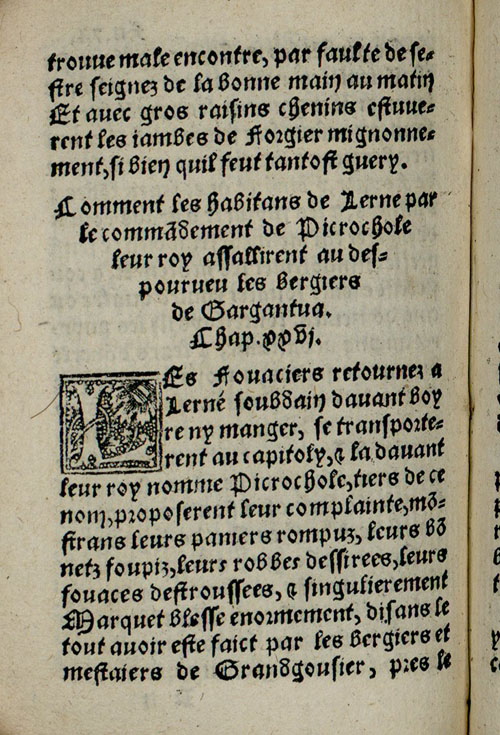 trouue male encontre, par faulte de se-
stre seignez de la bonne main au matin
Et auec gros raisins chenins estuue-
rent les iambes de Forgier mignonne-
ment, si bien quil feut tantost guery.
Comment les habitans de Lerne par
le commãdement de Picrochole
leur roy assallirent au des-
pourueu les bergiers
de Gargantua.
Chap. xxvj.
LEs Fouaciers retournez a
Lerné soubdain dauant boy
re ny manger, se transporte-
rent au capitoly, & la dauant
leur roy nomme Picrochole, tiers de ce
nom, proposerent leur complainte, mõ-
strans leurs paniers rompuz, leurs bõ
netz foupiz, leurs robbes dessirees, leurs
fouaces destroussees, & singulierement
Marquet blesse enormement, disans le
tout auoir este faict par les bergiers et
mestaiers de Grandgousier, pres le